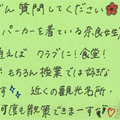 ん質問してください
パーカーを着ている奈良女生
えば クラブに!食堂!
もちろん授業では好きな
す 近くの観光名所・
何度も散策できまーす